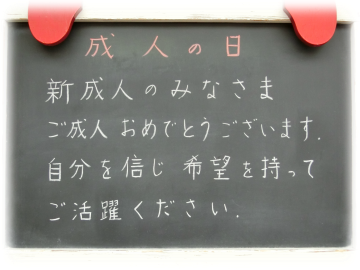 成人の日
新成人のみなさま
ご成人 おめでとうございます.
自分を信じ 希望を持って
ご活躍ください.